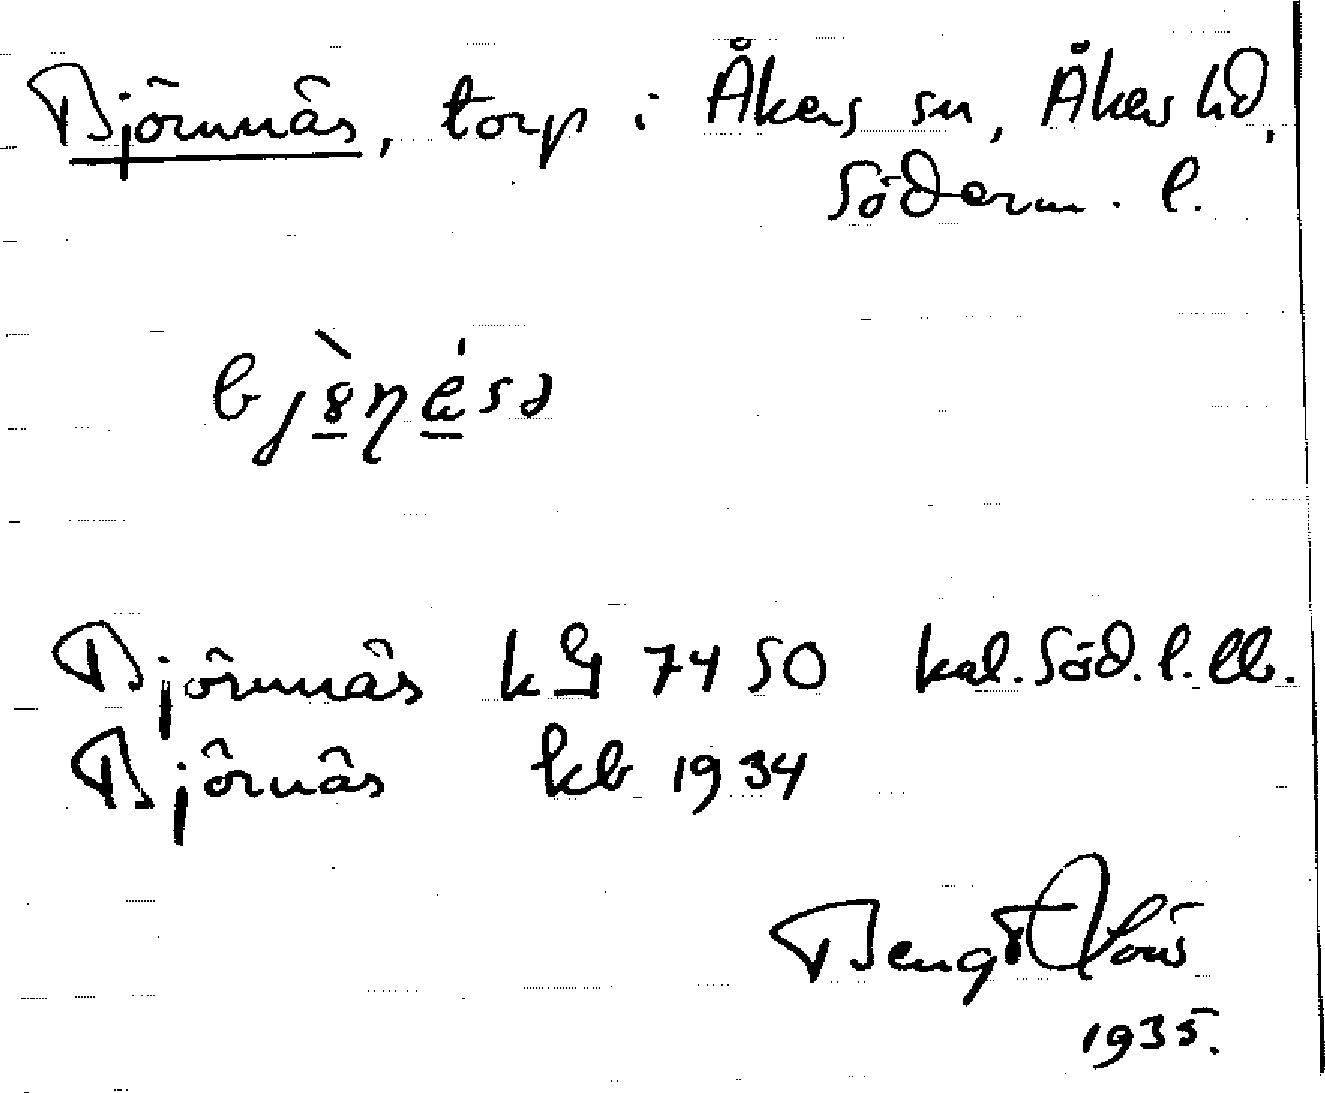 Björnnäs, torp i Åkers sn, Åkers hd,
Söderm. l.
Björnnäs kG 7450 kal. Söd. l. lb.
Björnäs kb 1934
Bengt
1935.